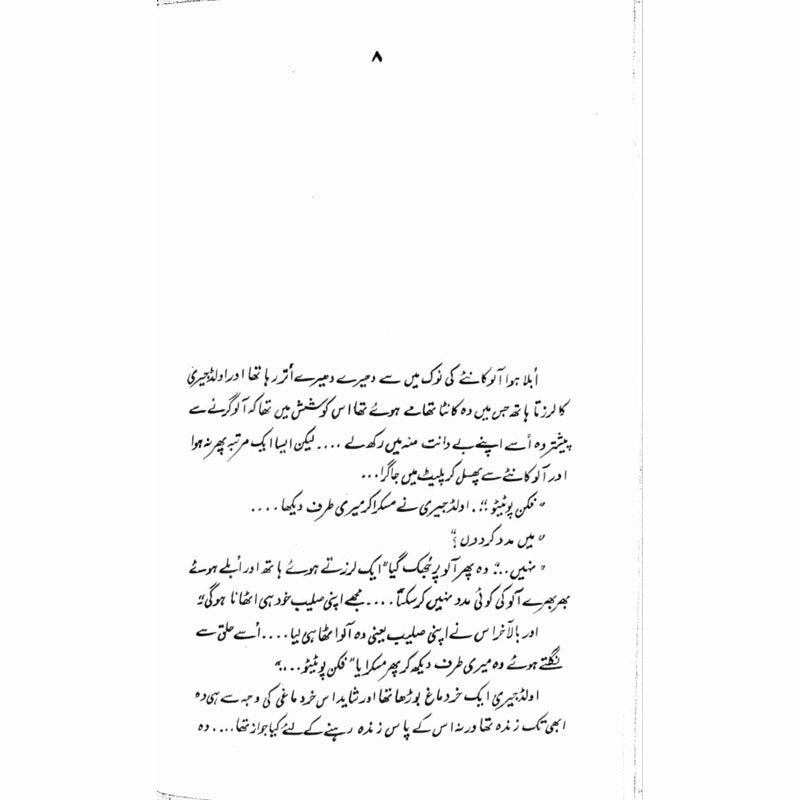 ۸
اُبلا ہوا آلو کانٹے کی نوک میں سے دھیرے دھیرے اُتر رہا تھا اور اولڈ جیری
کا لرزتا ہاتھ جس میں وہ کانٹا تھامے ہوئے تھا اس کوشش میں تھا کہ آلو گرنے سے
پیشتر وہ اُسے اپنے بے دانت منہ میں رکھ لے .... لیکن ایسا ایک مرتبہ پھر نہ ہوا
اور آلو کانٹے سے پھسل کر پلیٹ میں جا گرا...
"فکن پوٹیٹو"۔ اولڈ جیری نے مسکرا کر میری طرف دیکھا....
"میں مدد کر دوں؟"
"نہیں..." وہ پھر آلو پر جُھک گیا "ایک لرزتے ہوئے ہاتھ اور اُبلے ہوئے
بھربھرے آلو کی کوئی مدد نہیں کر سکتا.... مجھے اپنی صلیب خود ہی اٹھانا ہو گی"
اور بالآخر اس نے اپنی صلیب یعنی وہ آلو اٹھا ہی لیا .... اُسے حلق سے
نگلتے ہوئے وہ میری طرف دیکھ کر پھر مسکرایا "فکن پوٹیٹو...."
اولڈ جیری ایک خردماغ بوڑھا تھا اور شاید اس خردماغی کی وجہ سے ہی وہ
ابھی تک زندہ تھا ورنہ اس کے پاس زندہ رہنے کے لئے کیا جواز تھا.... وہ